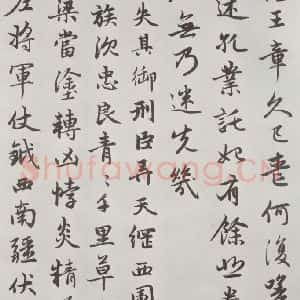 王章久已喪何復嗟
述孔業託始有餘悲
無乃迷先幾
失其御刑臣弄天綱西園
族沉忠良青々千里草
梁當塗轉凶悖炎精
左將軍仗鉞西南疆伏
Shufawang.cn